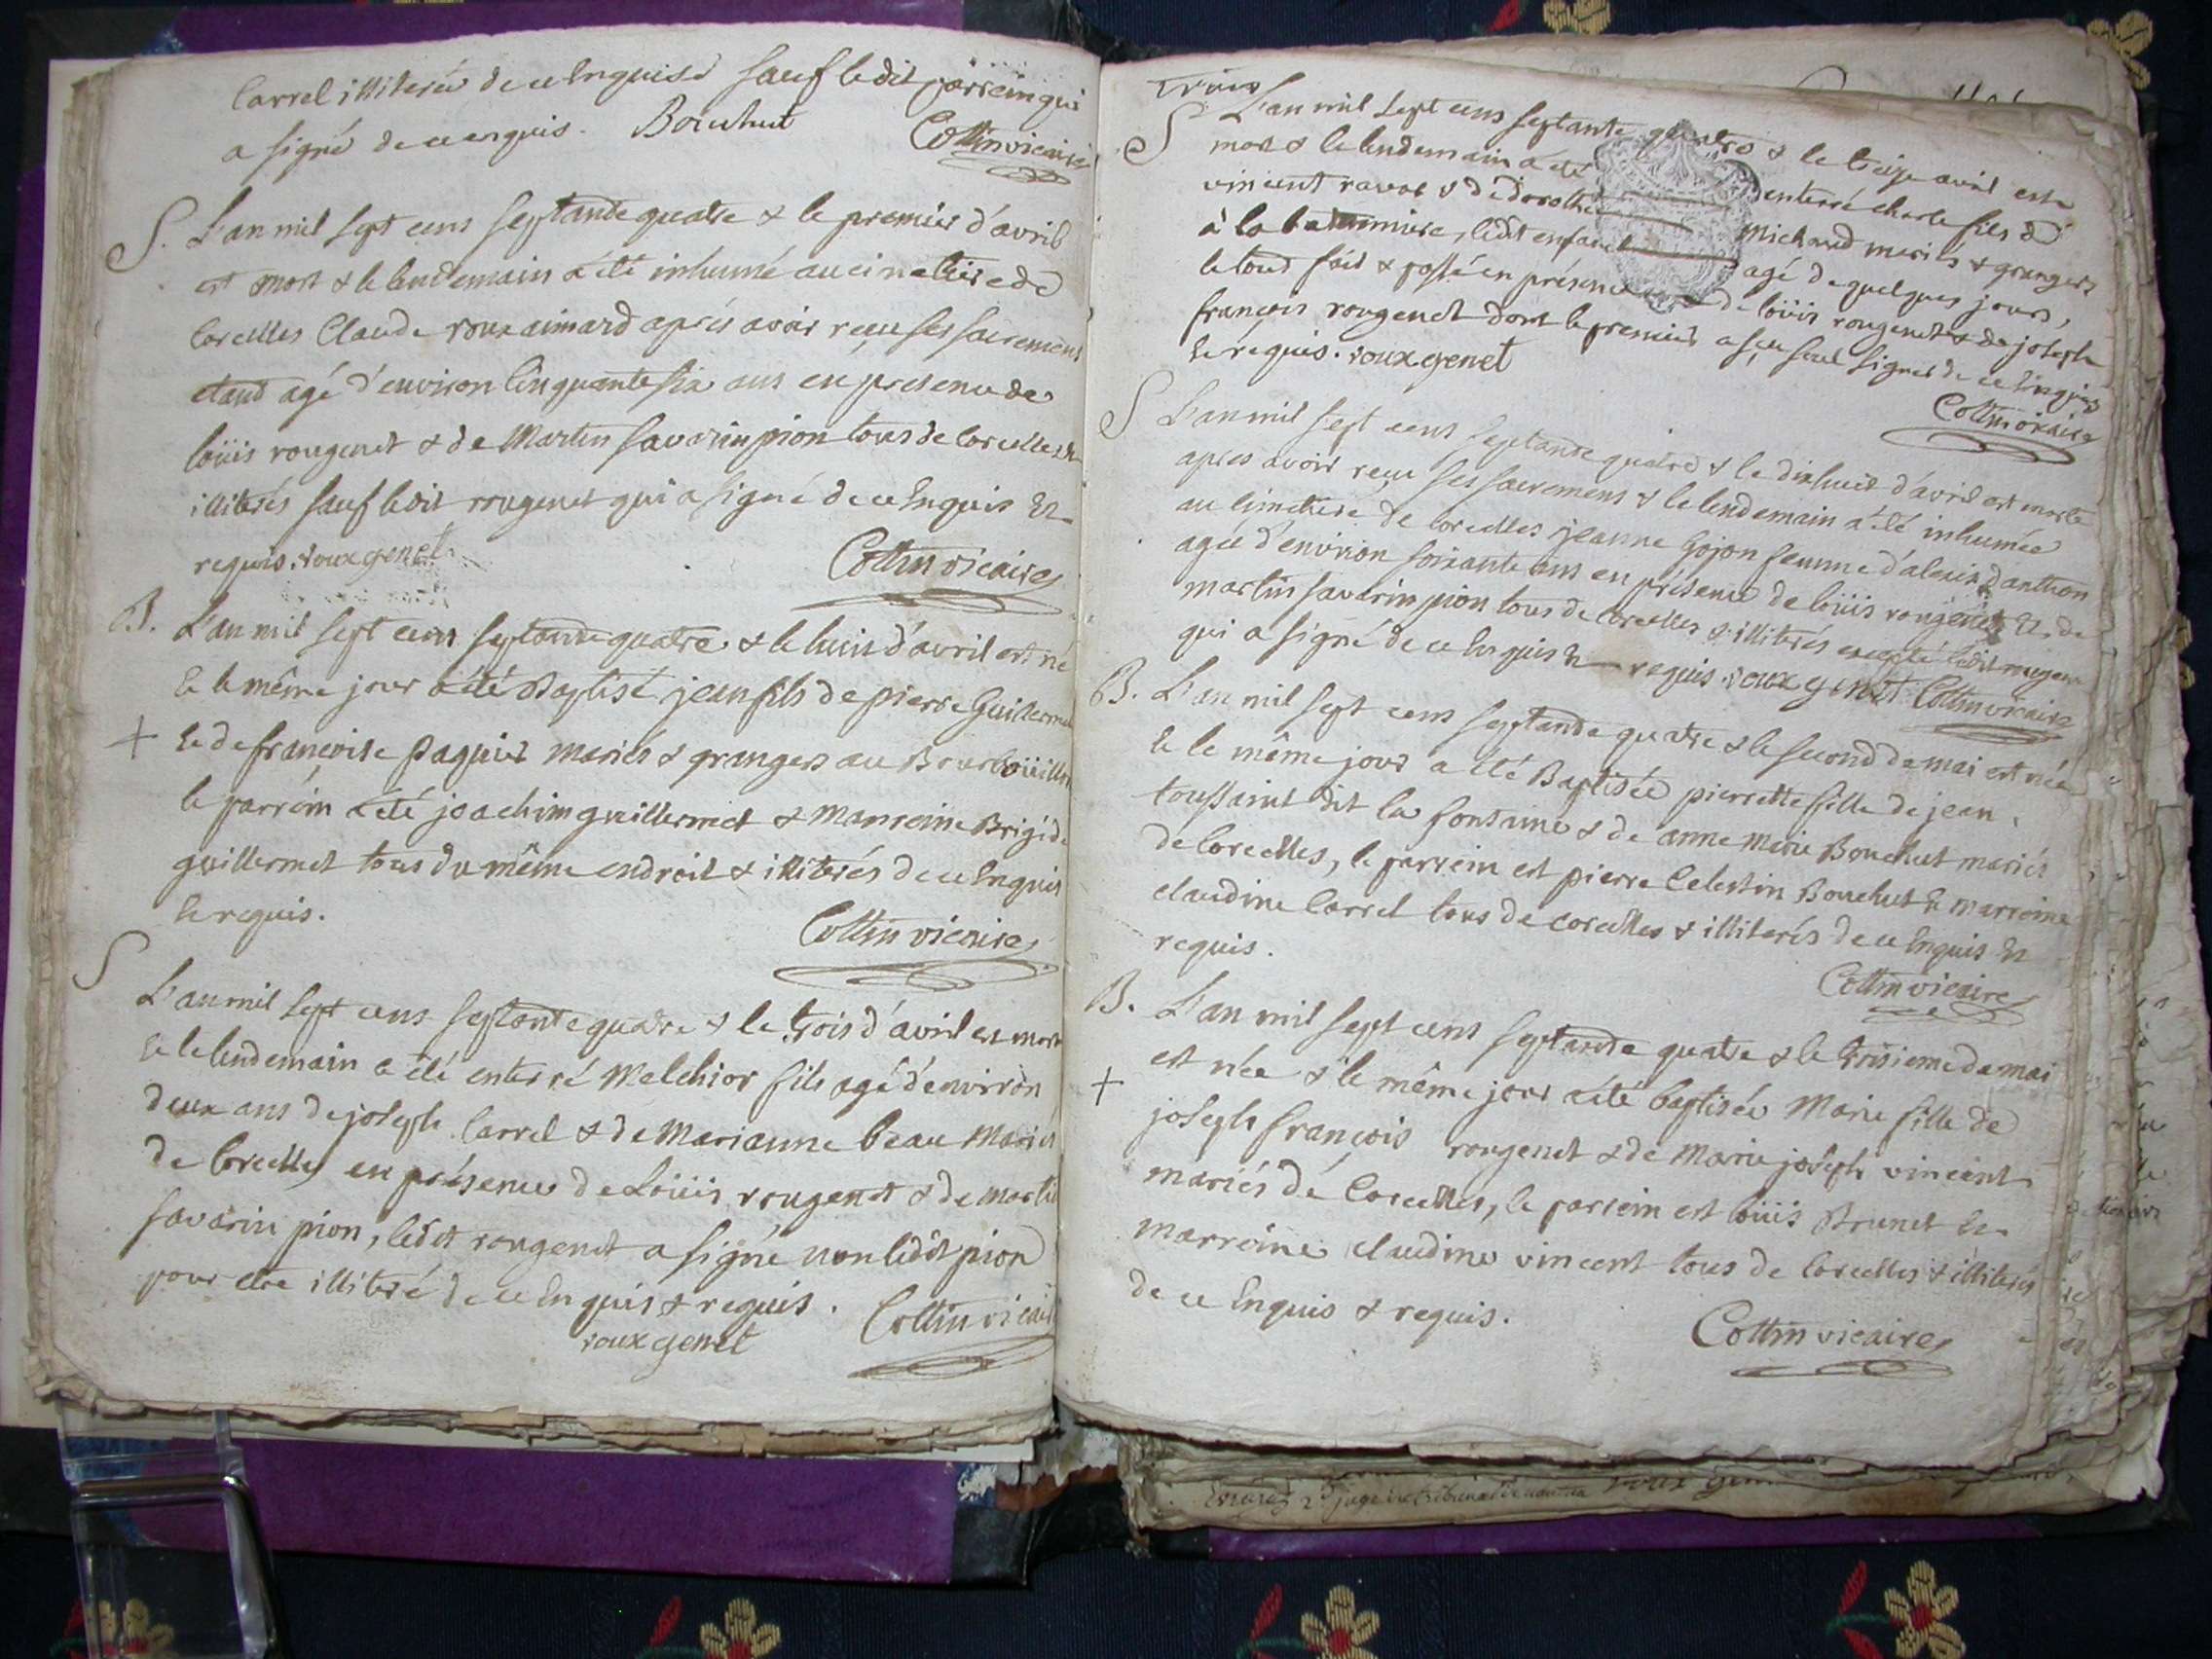 Carrel illiterés de ce Enquise sauf ledit parrein qui
a signé de ce enquis. Bouchut Collin vicaire
S. L'an mil sept cens septante quatre & le premier d'avril
est mort & le lendemain a été inhumé au cimetiere de
Corcelles Claude roux aimard aprés avoir reçu ses sacremens
etand agé d'environ Cinquante six ans en presence de
loüis rougenet & de Martin savarin pion tous de Corcelles &
illiterés sauf ledit rougenet qui a signé de ce Enquis Et
requis. rouxgenet Collin vicaire
B. L'an mil sept cens septante quatre & le huit d'avril est né
Et le même jour a été Baptisé jean fils de pierre Guillermet
+ Et de francoise paquis mariés & grangers au
le parrein a été joachim guillermet & marreine Brigide
guillermet tous du même endroit & illiterés de ce Enquis
Et requis. Collin vicaire
S L'an mil sept cens septante quatre & le trois d'avril est mort
Et le lendemain a été enterré Melchior fils agé d'environ
deux ans de joseph Carrel & de Marianne beau mariés
de Corcelles en présence de Loüis rougenet & de martin
savarin pion, ledit rougenet a signé non ledit pion
pour etre illiteré de ce Enquis & requis. Collin vicaire
rouxgenet
S L'an mil sept cens septante quatre & le treize avril est
mort & le lendemain a été enterré charle fils de
vincent ravot & de dorothée michaud mariés & grangers
à la , ledit enfant agé de quelques jours,
le tout fait & passé en présence de loüis rougenet & de joseph
françois rougenet dont le premier a sçu seul signer de ce Enquis
Et requis. rouxgenet Collin vicaire
S L'an mil sept cens septante quatre & le dixhuit d'avril est morte
apres avoir reçu ses sacremens & le lendemain a été inhumée
au cimetiere de Corcelles jeanne Gojon femme d'alexis danthon
agée d'environ soixante ans en présence de loüis rougenet Et de
martin savarin pion tous de Corcelles & illiterés excepté ledit rougenet
qui a signé de ce Enquis Et requis. rouxgenet Collin vicaire
B. L'an mil sept cens septante quatre & le second de mai est née
Et le même jour a été Baptisée pierrette fille de jean
toussaint dit la fontaine & de anne Marie Bouchut mariés
de Corcelles, le parrein est pierre Celestin Bouchut Et marreine
claudine Carrel tous de corcelles & illiterés de ce Enquis Et
requis. Collin vicaire
B. L'an mil sept cens septante quatre & le troisieme de mai
+ est née & le même jour a été baptisée Marie fille de
joseph françois rougenet & de Marie joseph vincent
mariés de Corcelles, le parrein est loüis Brunet Et
marreine claudine vincent tous de Corcelles & illiterés
de ce Enquis & requis.
Collin vicaire